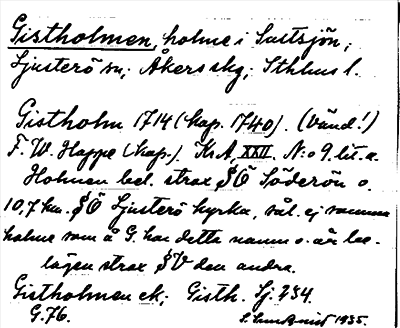 Gistholmen, holme i Saltsjön;
Ljusterö sn; Åkers skg; Sthlms l.
Gistholm 1714 (kap. 1740). (Vänd!)
F. W. Happe (kap.) KrA, XXII. N:o 9. lit. a.
Holmen bel. strax SÖ Söderön o.
10,7 km. SÖ Ljusterö kyrka, ej samma
holme som å G. har detta namn o. är be-
lägen strax SV den andra.
Gistholmen ek; Gisth. Sj. 234.
G. 76.
1935.